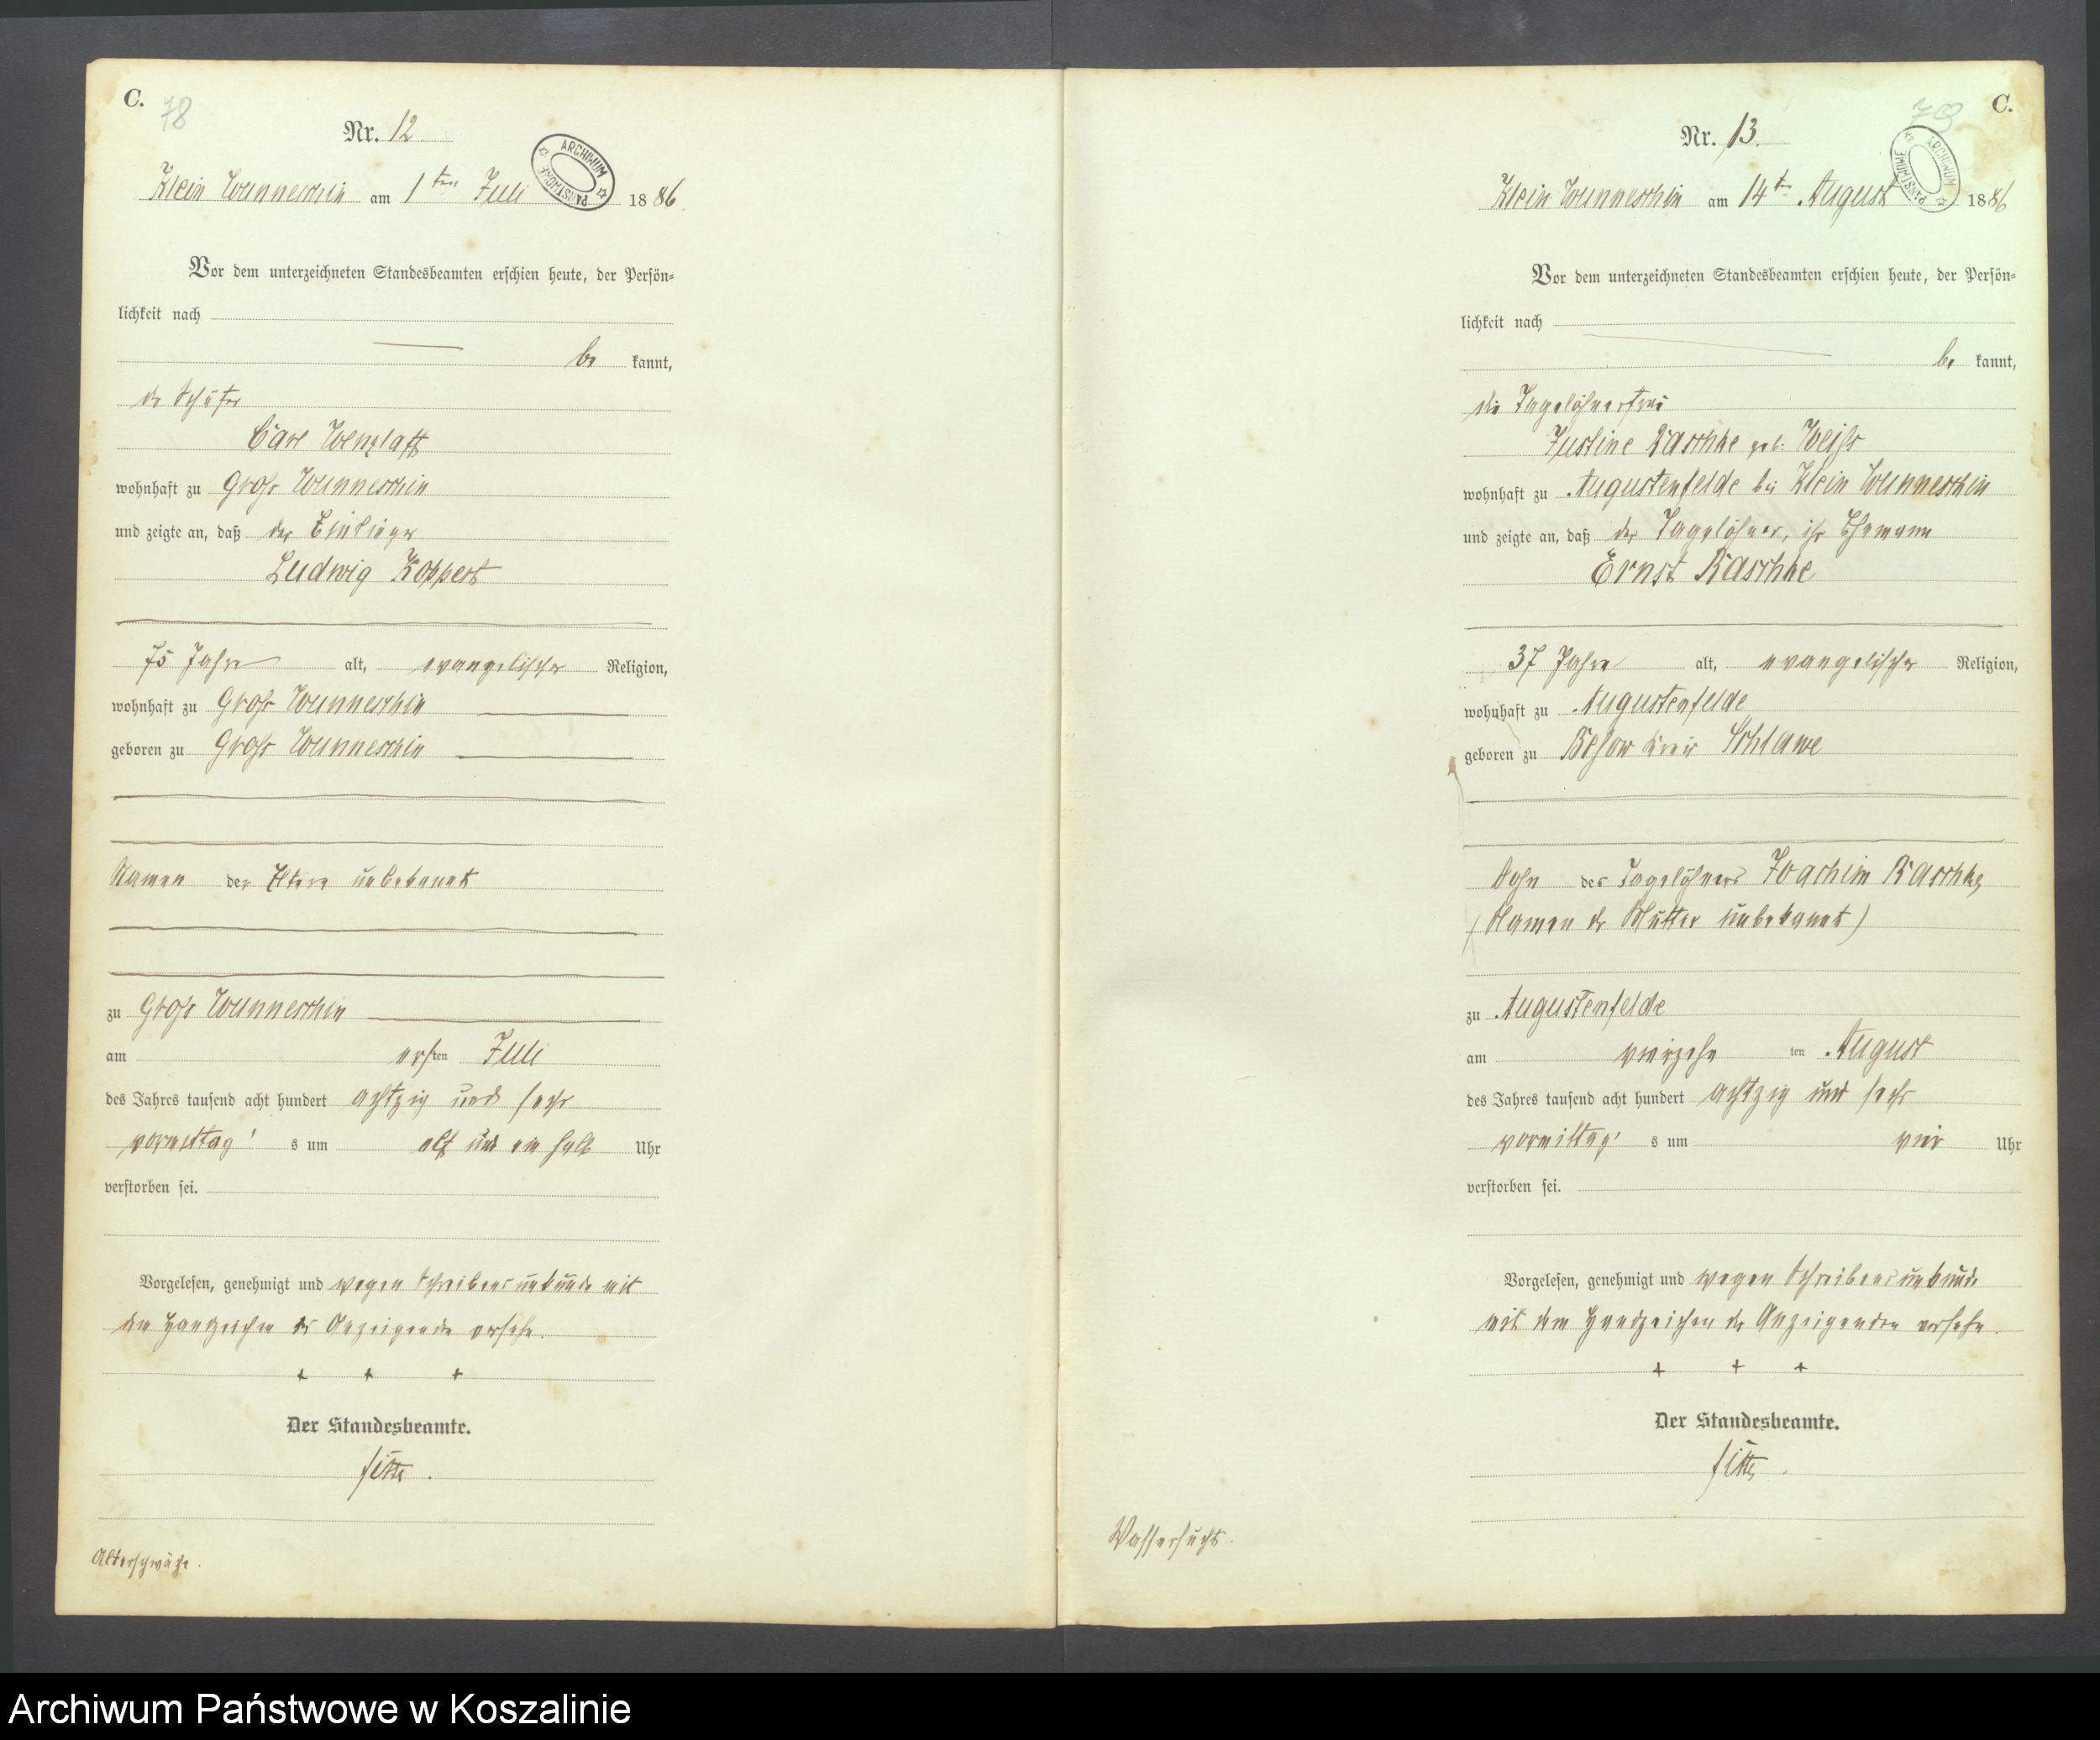 C.
78
Nr. 12
ARCHIWUM PAŃSTWOWE
Klein Wunneschin am 1ten Juli 1886.
Vor dem unterzeichneten Standesbeamten erschien heute, der Persön-
lichkeit nach
be kannt,
der Schäfer
Carl Wenzlaff
wohnhaft zu Groß Wunneschin
und zeigte an, daß der Einlieger
Ludwig Koppert
75 Jahre alt, evangelischer Religion,
wohnhaft zu Groß Wunneschin
geboren zu Groß Wunneschin
Namen der Eltern unbekannt
zu Groß Wunneschin
am ersten Juli
des Jahres tausend acht hundert achtzig und sechs
vormittag's um elf und ein halb Uhr
verstorben sei.
Vorgelesen, genehmigt und wegen Schreibensunkunde mit
dem Handzeichen des Anzeigenden versehen.
+ + +
Der Standesbeamte.
Altersschwäche.
C.
79
Nr. 13.
ARCHIWUM PAŃSTWOWE
Klein Wunneschin am 14t August 1886
Vor dem unterzeichneten Standesbeamten erschien heute, der Persön-
lichkeit nach
be kannt,
die Tagelöhnerfrau
Justine Raschke geb. Weiß
wohnhaft zu Augustenfelde bei Klein Wunneschin
und zeigte an, daß der Tagelöhner, ihr Ehemann
Ernst Raschke
37 Jahre alt, evangelischer Religion,
wohnhaft zu Augustenfelde
geboren zu Besow Kreis Schlawe
Sohn des Tagelöhners Joachim Raschke
(Namen der Mutter unbekannt)
zu Augustenfelde
am vierzehn ten August
des Jahres tausend acht hundert achtzig und sechs
vormittag's um vier Uhr
verstorben sei.
Vorgelesen, genehmigt und wegen Schreibensunkunde
mit dem Handzeichen der Anzeigenden versehen.
+ + +
Der Standesbeamte.
Wassersucht.
Archiwum Państwowe w Koszalinie